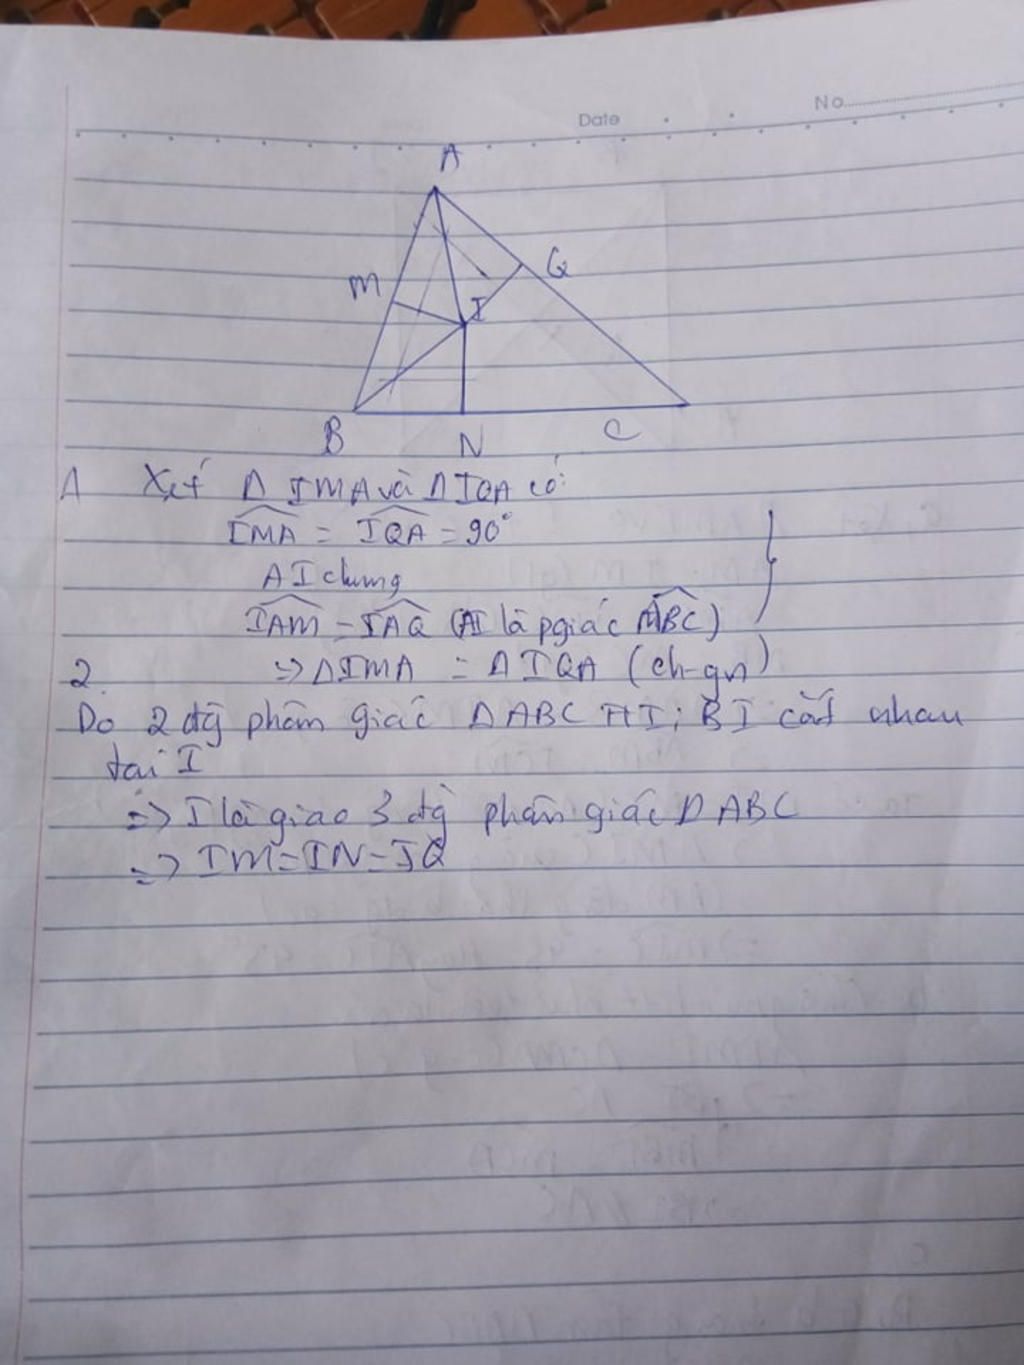 Date
No
A
M
Q
I
B
N
C
A Xét Δ IMA và Δ IQA có:
IMA = IQA = 90°
AI chung
IAM = IAQ (AI là pgiác ABC)
2. => ΔIMA = ΔIQA (ch-gn)
Do 2 đg phân giác ΔABC AI; BI cắt nhau
tại I
=> I là giao 3 đg phân giác Δ ABC
=> IM=IN=IQ